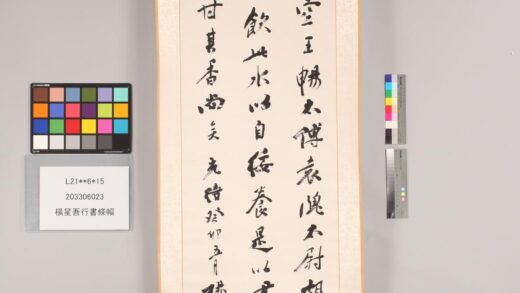 空王暢太傅袁隗太尉胡
飲此水以自綏養是以君
甘其香尚矣 光緒癸卯五月 楊
L21**6*15
203306023
楊星吾行書條幅